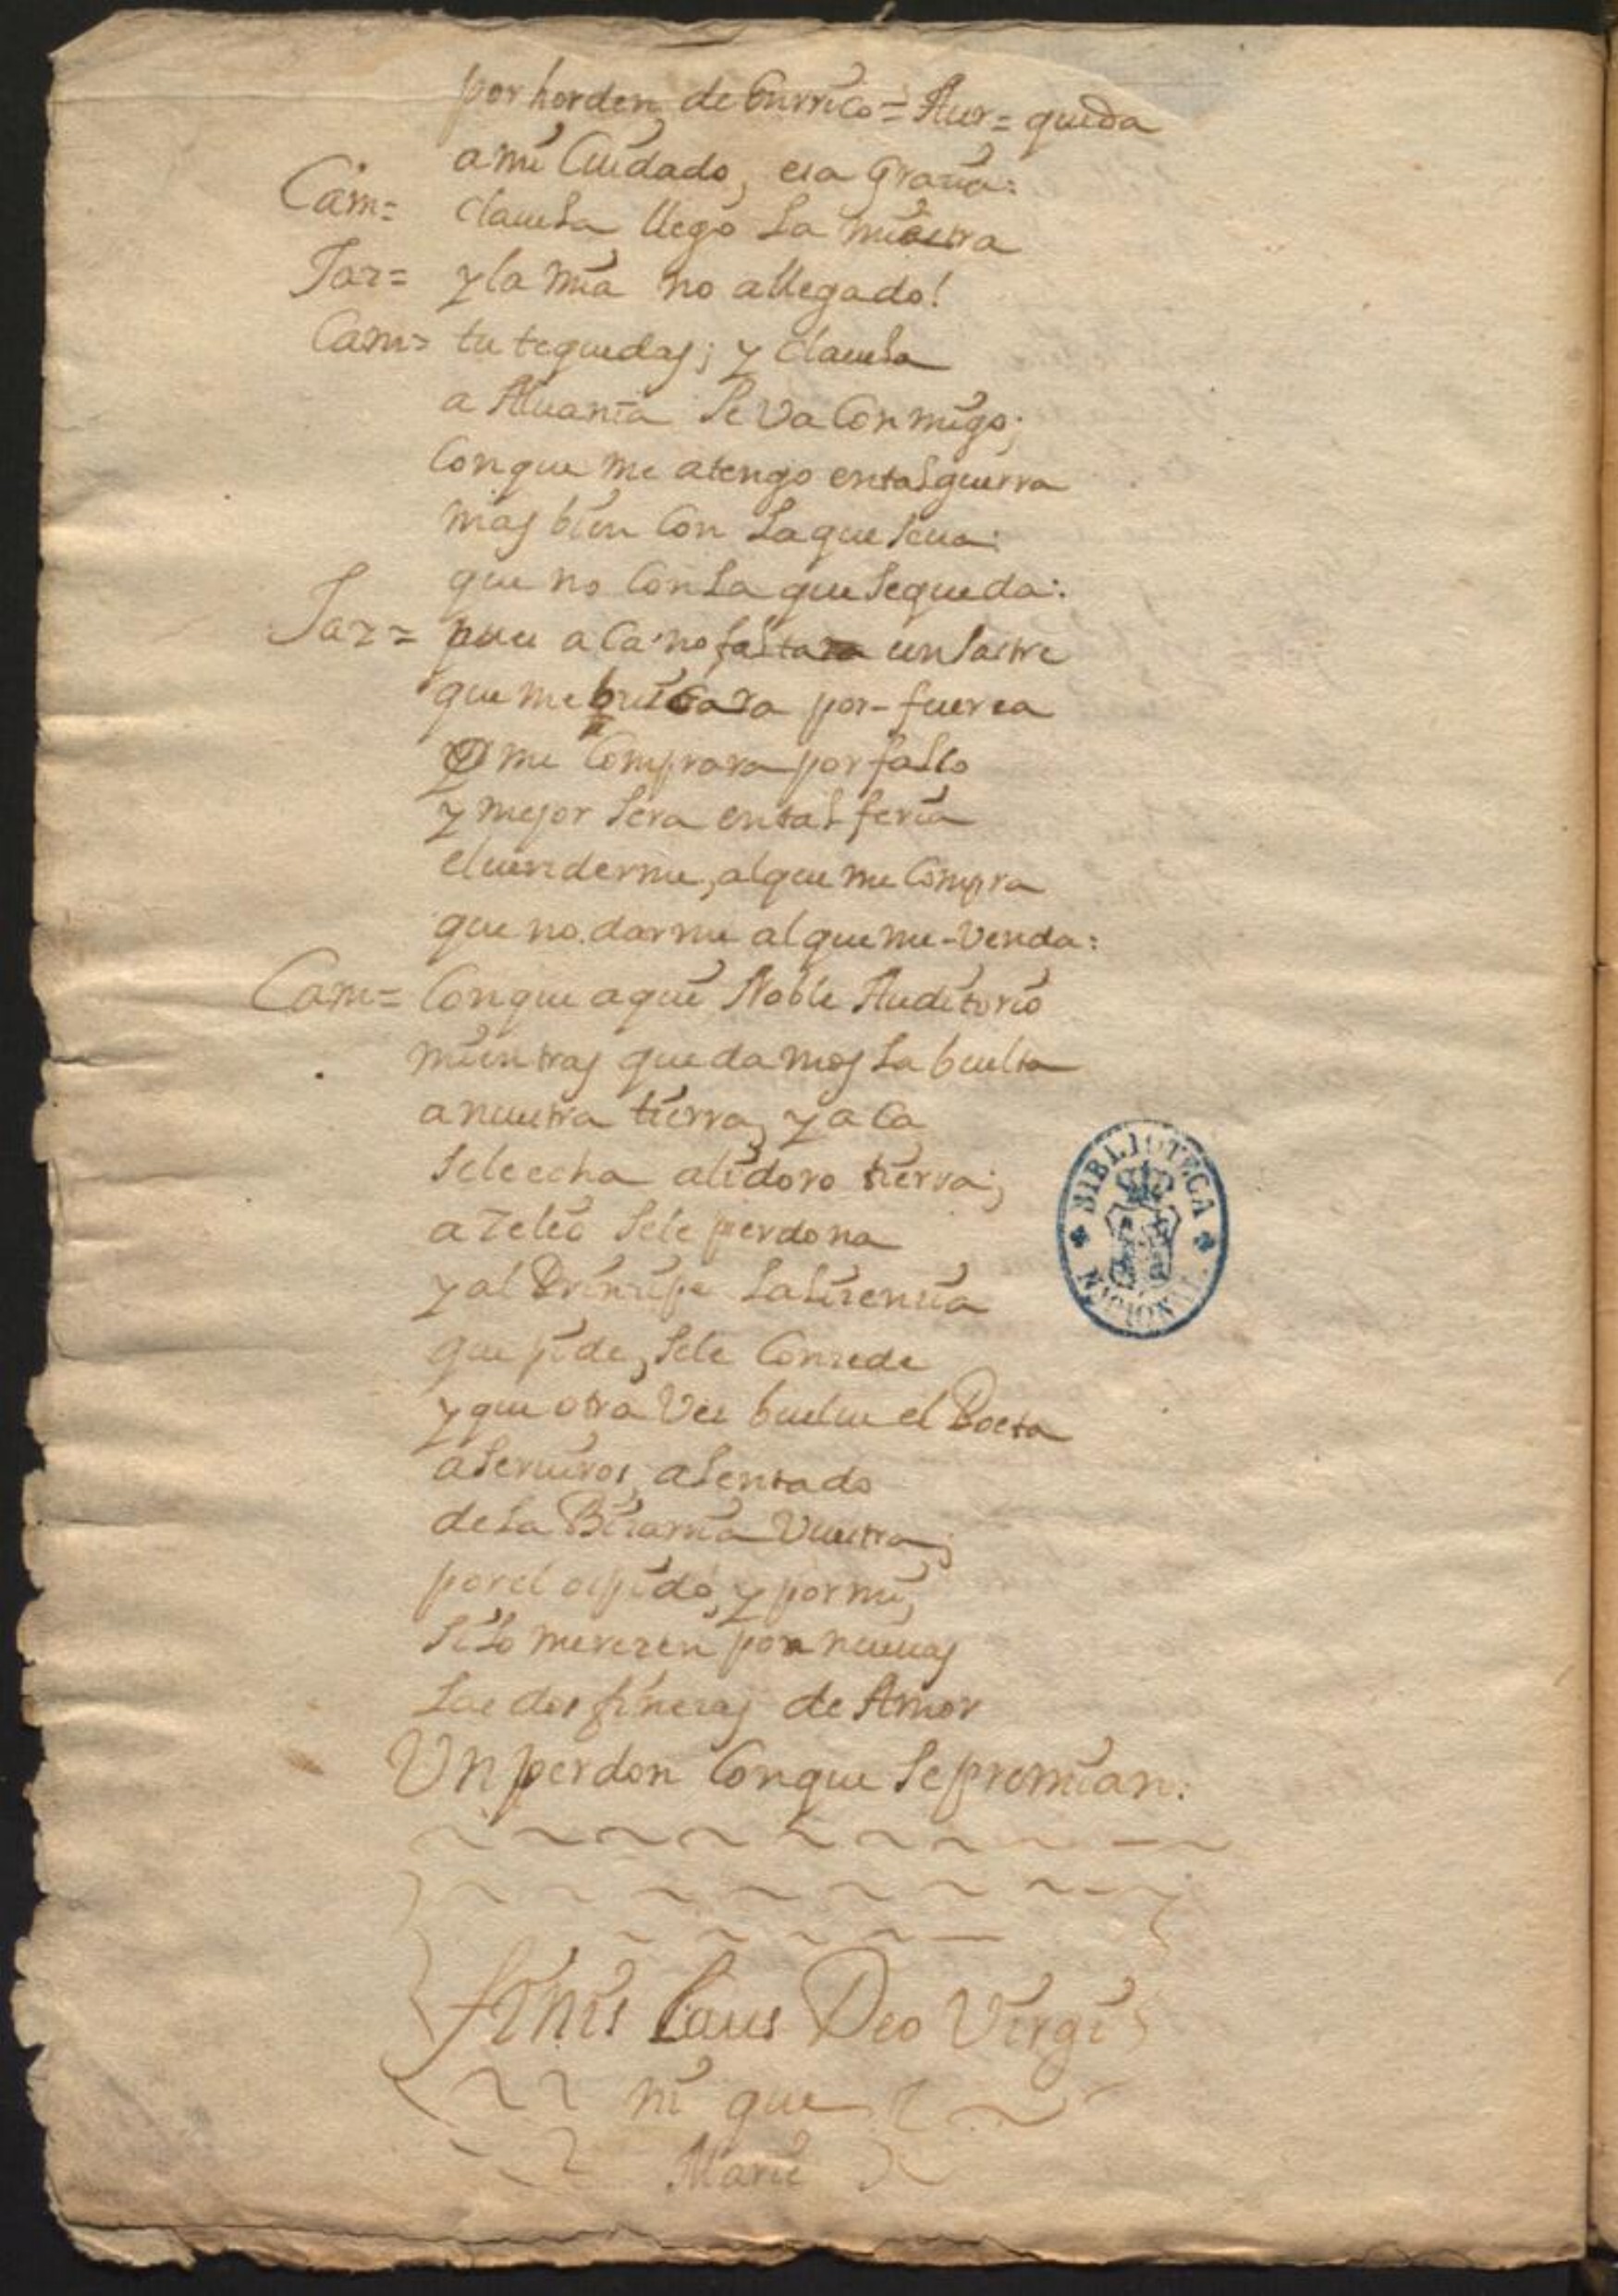 por horden de Enrrico = Aur = queda
a mi Cuidado, esa gracia:
Cam = clauela llego la nuestra
Jaz = y la mia no a llegado!
Cam = tu te quedas; y clauela
a Aluania se va Con migo;
Con que me atengo en tal guerra
mas bien Con la que se ua:
que no Con la que se queda:
Jaz = pues a ca no faltara un sastre
que me buscara por fuerza
y me Comprara por falso
y mejor sera en tal feria
el uenderme, al que me Compra
que no darme al que me Venda:
Cam = Con que aqui Noble Auditorio
mientras que damos la buelta
a nuestra tierra, y a ca
se le echa alidoro tierra;
a Zelio se le perdona
y al Principe la lizencia
que pide, se le Conzede
y que otra Vez buelue el Poeta
a seruiros, alentado
de la Bizarria Vuestra;
por el os pido, y por mi,
si lo merezen por nueuas
las dos finezas de Amor
Un perdon Con que se premian:
finis Laus Deo Virgi
ni que
Marie
BIBLIOTECA NACIONAL